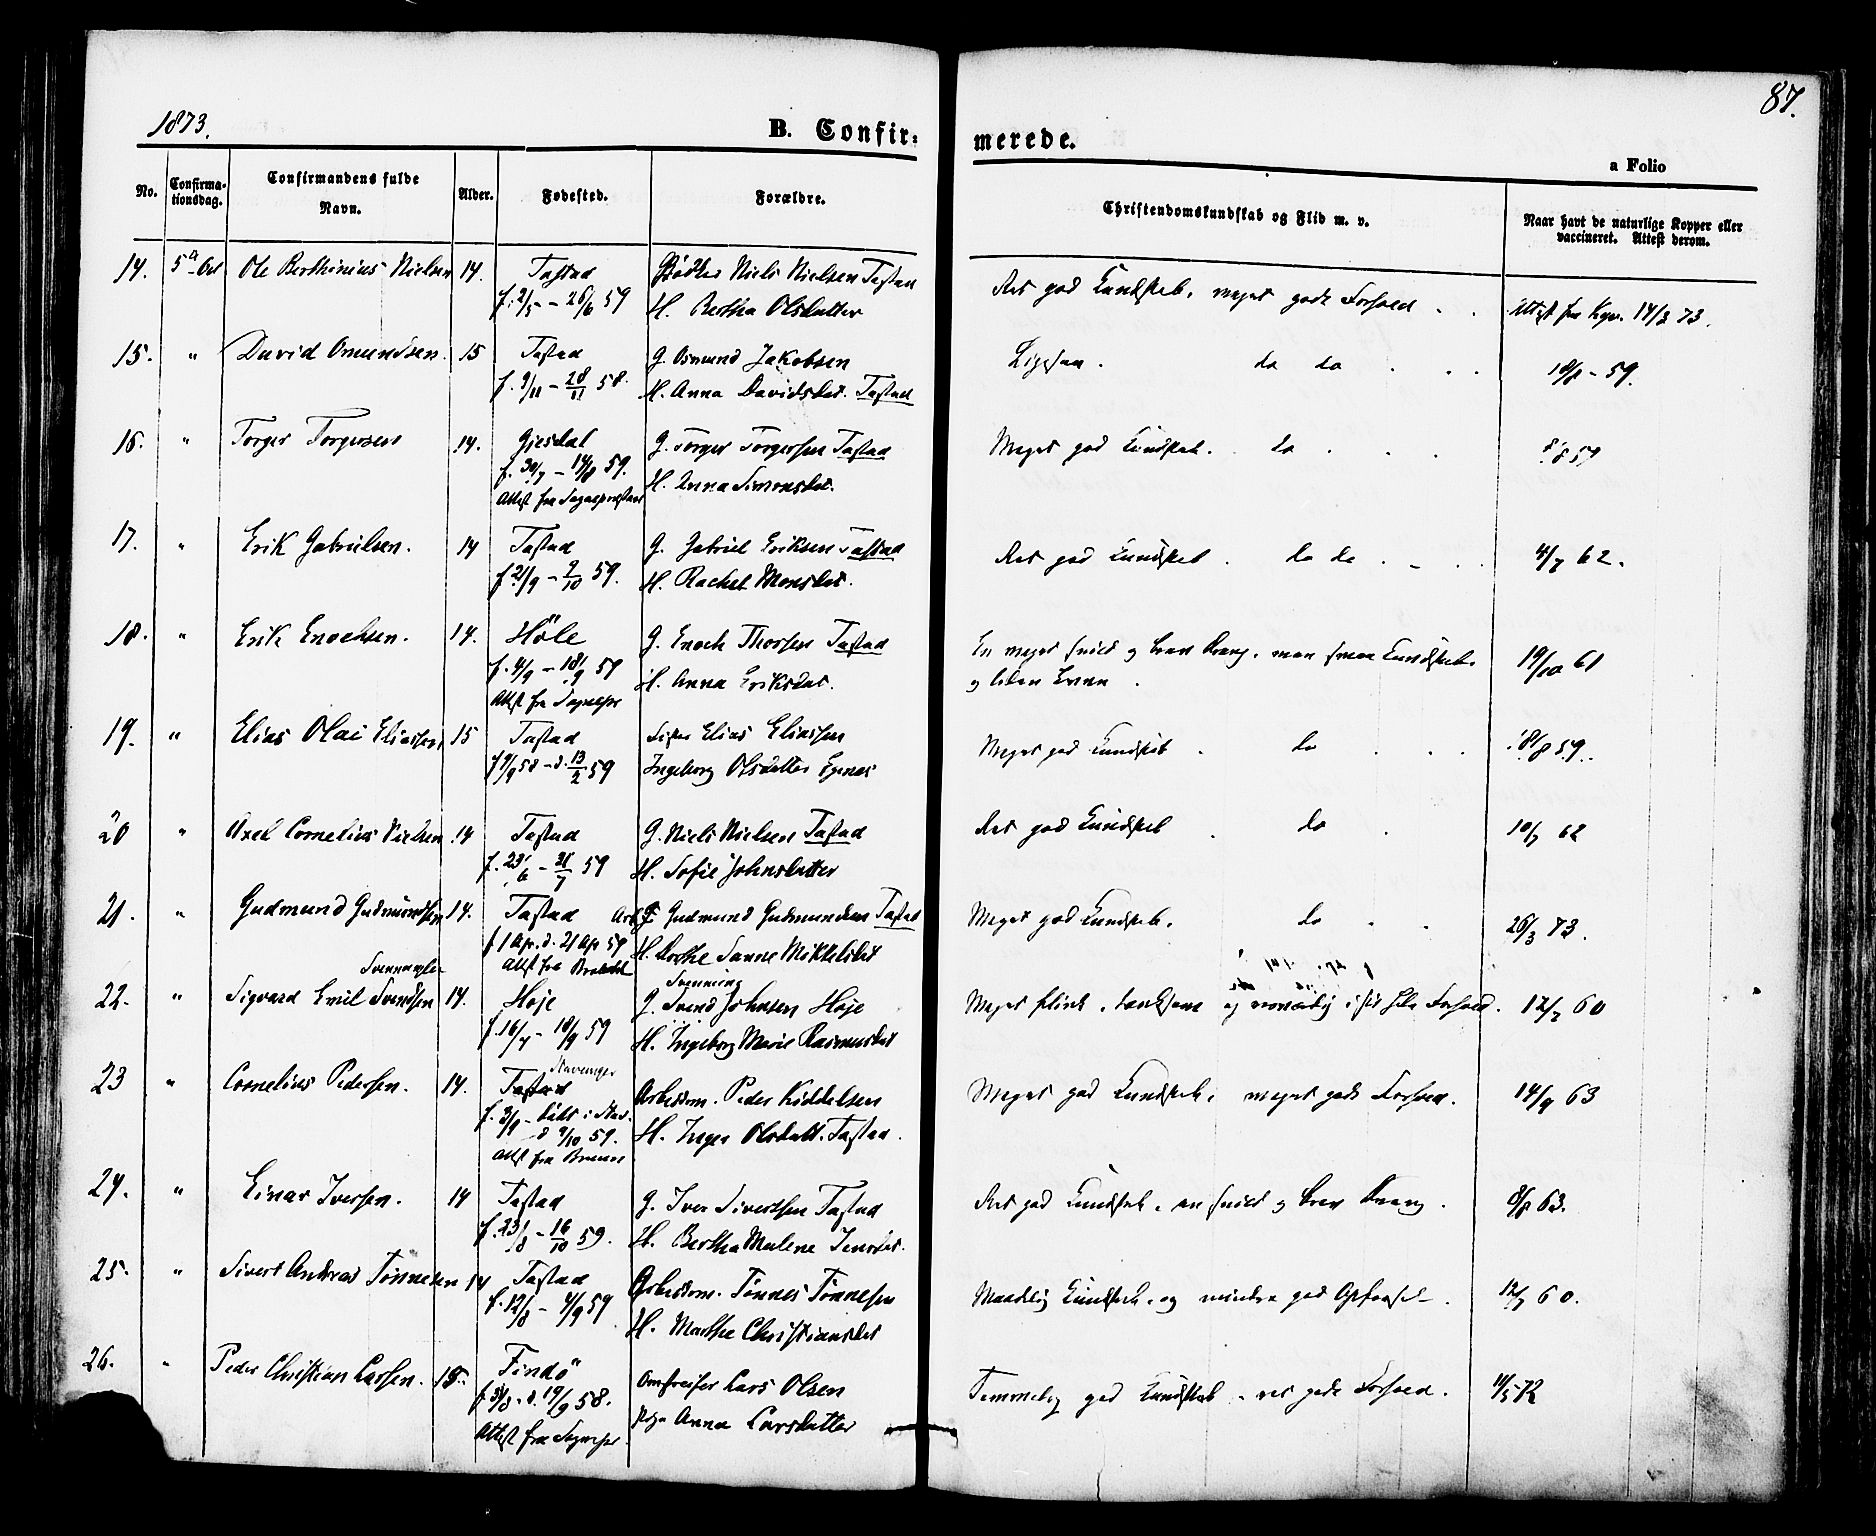 1873.
87.
B. Confir-
merede.
a Folio
No.
Confirma-
tionsdag.
Confirmandens fulde
Navn.
Alder.
Fødested.
Forældre.
Christendomskundskab og Flid m. v.
Naar havt de naturlige Kopper eller
vaccineret. Attest derom.
14. 5te Oct Ole Berthinius Nielsen 14. Tastad Bødker Niels Nielsen Tastad Ret god Kundskab, meget godt Forhold . . Attest fra 14/3 73.
f. 2/5 – 26/6 59 H. Bertha Olsdatter
15. " David Omundsen. 15 Tastad G. Osmund Jakobsen Ligesaa . do do . . . – 59.
f. 9/11 – 28/11 58. H. Anna Davidsdat. Tastad
16. " Torger Torgersen 14. Gjesdal G. Torger Torgersen Tastad Meget god Kundskab. do . . . 59
f. 30/7 – 14/8 59. H. Anna Simonsdat.
Attest fra Sognepresten
17. " Erik Gabrielsen. 14 Tastad G. Gabriel Eriksen Tastad Ret god Kundskab . do do . . . 4/7 62.
f. 21/9 – 9/10 59. H. Rachel Monsdat.
18. " Erik Enochsen. 14. Høle G. Enoch Thorsen Tastad En meget snild og brav Dreng, men smaa Kundskab. 19/10 61
f. 4/9 – 18/9 59 H. Anna Eriksdat. og liden Evne .
Attest fra Sognepr
19. " Elias Olai Eliassen 15 Tastad Elias Eliassen Meget god Kundskab . do . . . 18/8 59.
f. 9/9 58 – d. 13/2 59 Ingeborg Olsdatter Egenes
20 " Axel Cornelius Nielsen 14 Tastad G. Niels Nielsen Tastad Ret god Kundskab . do . 10/7 62
f. 23/6 – 31/7 59 H. Sofie Johnsdatter
21. " Gudmund Gudmundsen 14. Tastad Arb. G. Gudmund Gudmundsen Tastad Meget god Kundskab. do . . 26/3 73.
f. 1 Apr. d. 21 Apr 59 H. Dorthe Sanne Mikkelsdat
Attest fra
22. " Sigvard Emil Svendsen 14. Høje G. Svend Johnsen Høje Meget flink, tænksom og i sit hele Forhold. 12/7 60
f. 16/7 – 18/9 59 H. Ingeborg Marie Rasmusdat
23 " Cornelius Pedersen. 14. Tastad Stavanger Arbeidsm. Peder Kiddelsen Meget god Kundskab, meget godt Forhold. 14/9 63
f. 3/9 døbt i Stav. H. Inger Olsdatt. Tastad.
d. 9/10 59.
Attest fra
24. " Einar Iversen. 14 Tastad G. Iver Sivertsen Tastad Ret god Kundskab, en snild og brav Dreng . 8/8 63.
f. 23/8 – 16/10 59. H. Bertha Malene Jensdat.
25. " Sivert Andreas Tønnesen 14 Tastad Arbeidsm. Tønnes Tønnesen Maadelig Kundskab, og mindre god Opførsel . 12/7 60.
f. 12/8 – 4/9 59 H. Marthe Christiansdat
26. " Peder Christian Larsen. 15. Findø Omstreifer Lars Olsen Temmelig god Kundskab, ret godt Forhold. 11/5 72
f. 31/8 – d. 19/9 58. Pige Anna Larsdatter
Attest fra Sognepr.